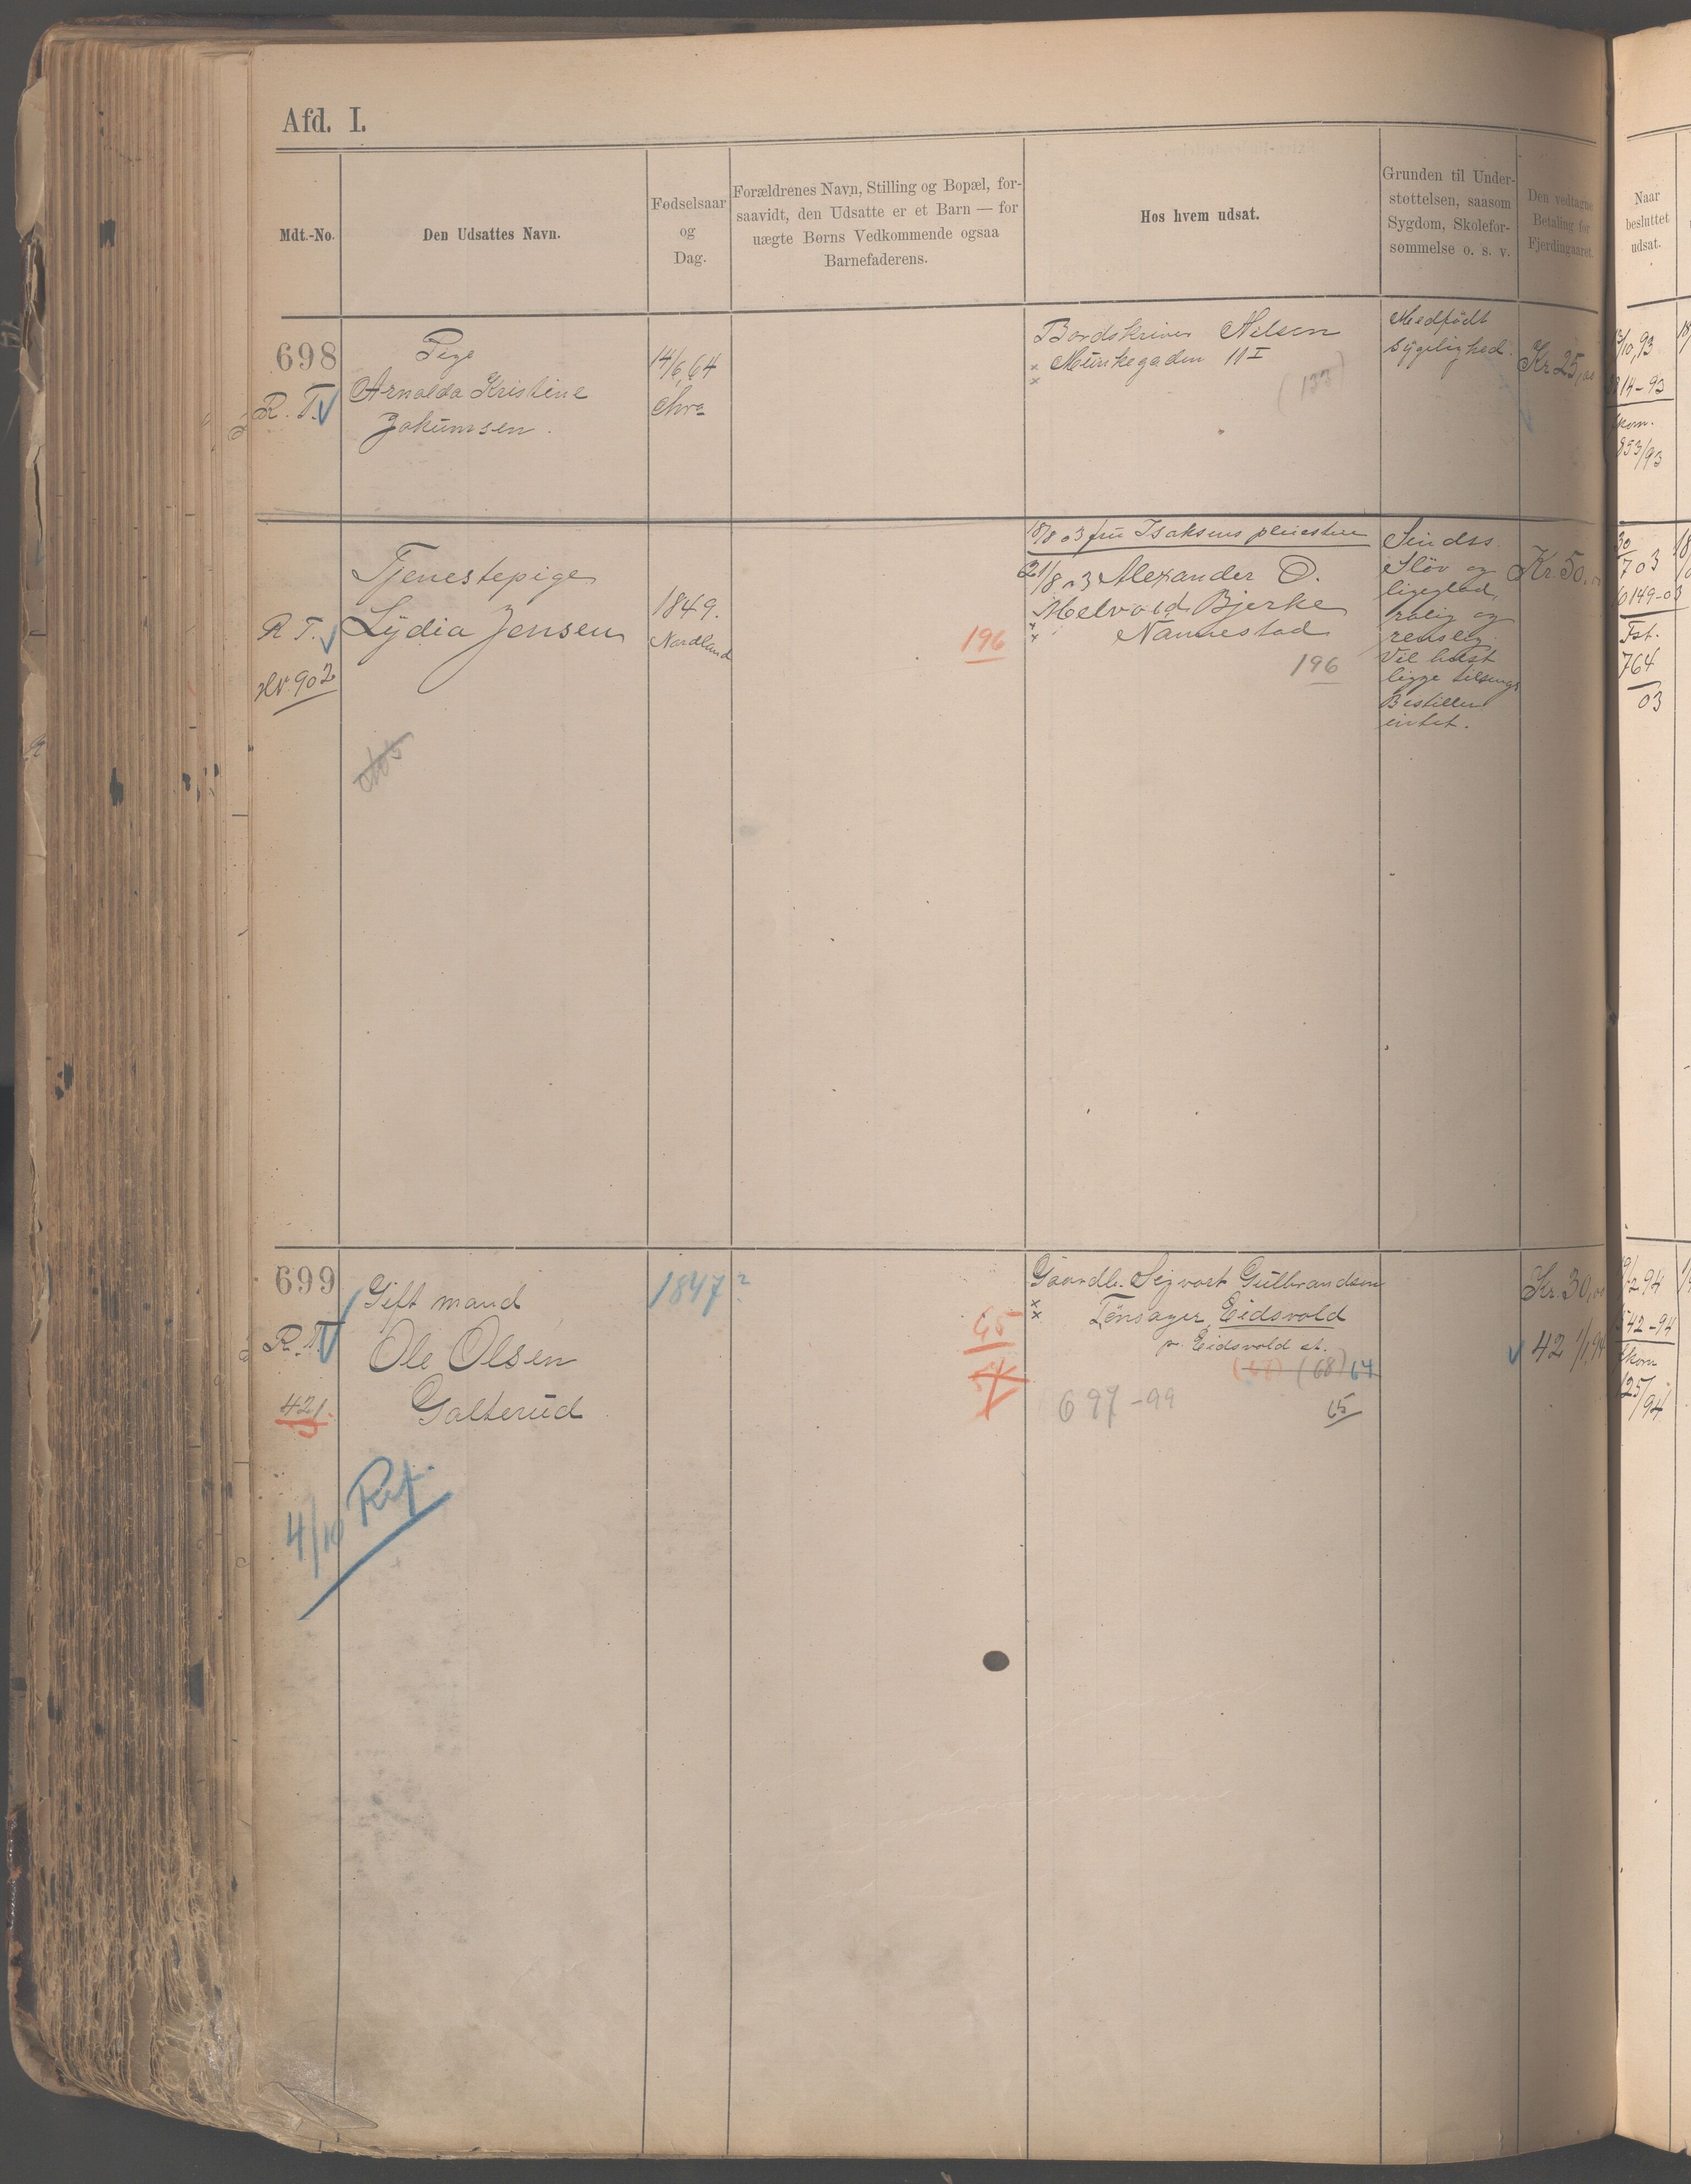 Afd. I.
Mdt.-No.
Den Udsattes Navn.
Fødselsaar
og
Dag.
Forældrenes Navn, Stilling og Bopæl, for-
saavidt, den Udsatte er et Barn — for
uægte Børns Vedkommende ogsaa
Barnefaderens.
Hos hvem udsat.
Grunden til Under-
støttelsen, saasom
Sygdom, Skolefor-
sømmelse o. s. v.
Den vedtagne
Betaling for
Fjerdingaaret.
Naar
besluttet
udsat.
698
R. T.
Pige
Arnolda Kristine
Jokumsen.
14/6,64
Chra
Bordskriver Nilsen
Munkegaden 11 I
(133)
Medfødt
sygelighed.
Kr 25,00
13/10,93
14-93
kom.
853/93
R T.
902
Tjenestepige
Lydia Jensen
1849.
Nordland
196
18/8 03 fru Isaksens pleiestue
21/8 03 Alexander O.
Melvold Bjerke
Nannestad
196
Sindss.
Sløv og
ligeglad,
rolig og
renslig.
Vil helst
ligge tilsengs
Bestiller
intet.
Kr. 50,
30
7 03
6149-03
Fst.
764
03
699
R. T.
421.
Gift mand
Ole Olsen
Galterud
4/10 Ref.
1847?
65
Gaardb. Sigvart Gulbrandsen
Tønsager, Eidsvold
p. Eidsvold st.
(68) 64
697-99
65
Kr. 30,00
42 1/1,94
2 94
542-94
kom
125/94